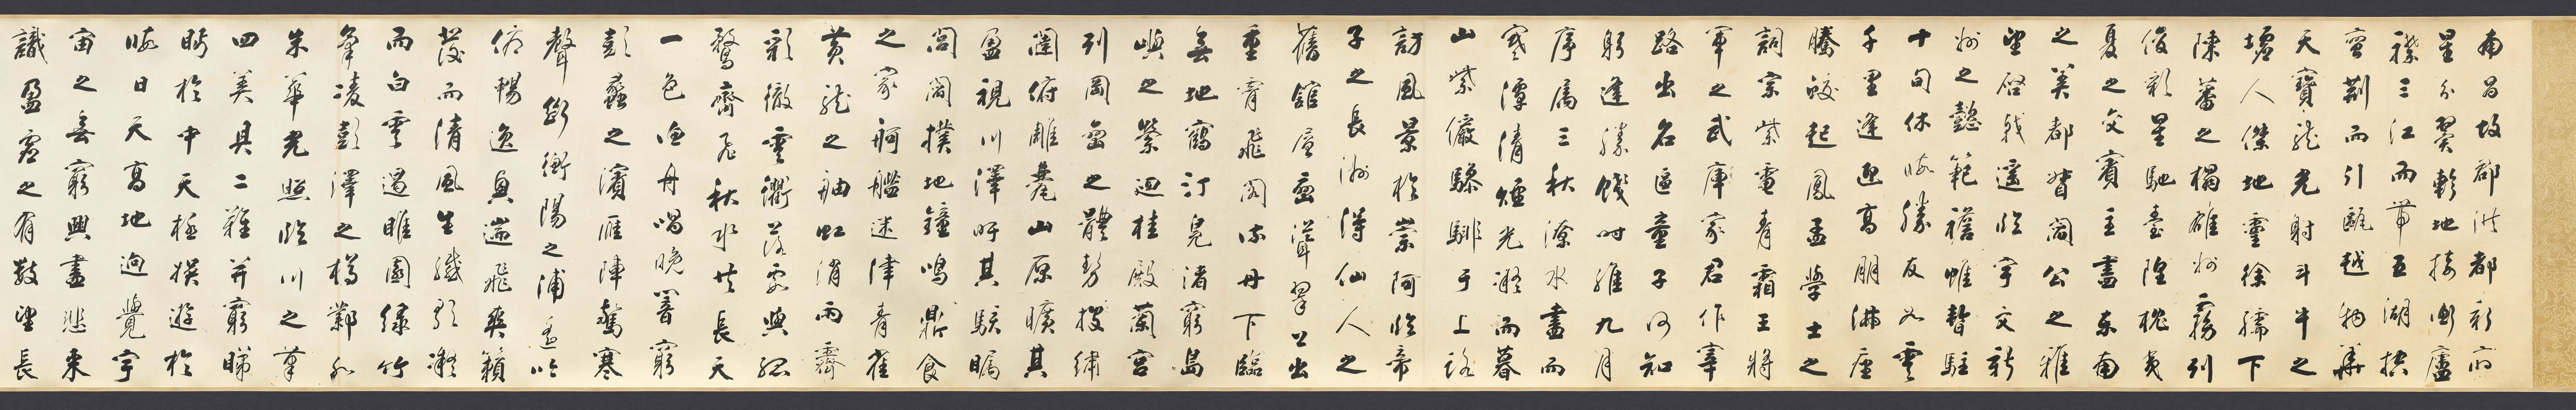 南昌故郡洪都新府
星分翼軫地接衡廬
襟三江而帶五湖控
蠻荊而引甌越物華
天寶龍光射斗牛之
墟人傑地靈徐孺下
陳蕃之榻雄州霧列
俊彩星馳臺隍枕夷
夏之交賓主盡東南
之美都督閻公之雅
望啓戟遙臨宇文新
州之懿範襜帷暫駐
十旬休暇勝友如雲
千里逢迎高朋滿座
騰蛟起鳳孟學士之
詞宗紫電青霜王將
軍之武庫家君作宰
路出名區童子何知
躬逢勝餞時維九月
序屬三秋潦水盡而
寒潭清煙光凝而暮
山紫儼驂騑于上路
訪風景於崇阿臨帝
子之長洲得仙人之
舊館層巒聳翠上出
重霄飛閣流丹下臨
無地鶴汀鳧渚窮島
嶼之縈迴桂殿蘭宮
列岡巒之體勢披繡
闥俯雕甍山原曠其
盈視川澤盱其駭矚
閭閻撲地鐘鳴鼎食
之家舸艦迷津青雀
黃龍之舳虹消雨霽
彩徹雲衢落霞與孤
鶩齊飛秋水共長天
一色漁舟唱晚響窮
彭蠡之濱雁陣驚寒
聲斷衡陽之浦遙吟
俯暢逸興遄飛爽籟
發而清風生纖歌凝
而白雲遏睢園綠竹
氣凌彭澤之樽鄴水
朱華光照臨川之筆
四美具二難并窮睇
眄於中天極娛遊於
暇日天高地迥覺宇
宙之無窮興盡悲來
識盈虛之有數望長